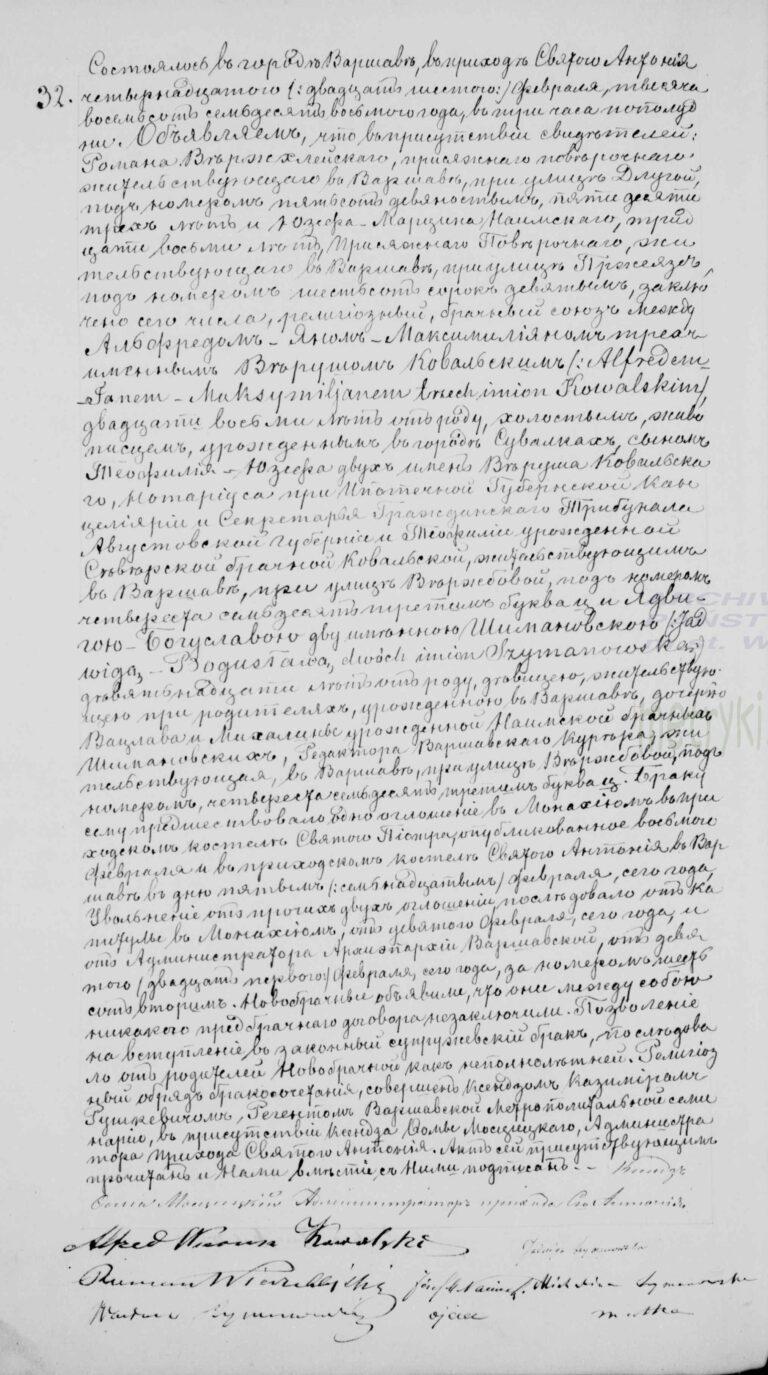 Состоялось въ городѣ Варшавѣ, въ приходѣ Святого Антонія
32. четырнадцатого (: двадцать шестого :) Февраля, тысяча
восемьсотъ семьдесятъ восьмого года, въ три часа пополуд
ни Объявляемъ, что въ присутствіи свидѣтелей:
Романа Вѣржхлейскаго, присяжнаго повѣрочнаго
жительствующаго въ Варшавѣ, при улицѣ Длугой,
подъ номеромъ пятьсотъ девяностымъ, пяти десяти
трехъ лѣтъ и Юзефа-Марцина Наимскаго, трид
цати восьми лѣтъ, Присяжнаго Повѣрочнаго, жи
тельствующаго въ Варшавѣ, при улицѣ Пржеяздъ,
подъ номеромъ шестьсотъ сорокъ девятымъ, заклю
чено сего числа, религіозный, брачный союзъ между
Альфредомъ - Яномъ - Максимиліяномъ трехъ
именнымъ Вѣрушомъ Ковальскимъ (: Alfredem -
- Janem - Maksymiljanem trzech imion Kowalskim)
двадцати восьми лѣтъ отъ роду, холостымъ, живо
писцемъ, урожденнымъ въ городѣ Сувалкахъ, сыномъ
Теофилія - Юзефа двухъ именъ Вѣруша Ковальска
го, Нотаріуса при Ипотечной Губернской Кан
целяріи и Секретарья Гражданскаго Трибунала
Августовской Губерніи и Теофиліи урожденной
Сѣверской брачной Ковальской, жительствующимъ
въ Варшавѣ, при улицѣ Вѣржбовой, подъ номеромъ
четыреста семьдесятъ третимъ буква ц и Ядви-
гою - Богуславою дву именною Шимановскою (: Jad
wigą - Bogusławą, dwóch imion Szymanowską)
девятьнадцати лѣтъ отъ роду, дѣвицею, жительствую-
щею при родителяхъ, урожденною въ Варшавѣ, дочерью
Вацлава и Михалины урожденной Наимской брачныхъ
Шимановскихъ, Редактора Варшавскаго Курьера, жи
тельствующая, въ Варшавѣ, при улицѣ Вѣржбовой, подъ
номеромъ, четыреста семьдесятъ третимъ буква ц. Браку
сему предшествовало одно оглошеніе въ Монахіюмъ въ при
ходскомъ костелѣ Святого Піотра, опубликованное восьмого
Февраля и въ приходскомъ костелѣ Святого Антонія въ Вар
шавѣ въ дню пятымъ (: семьнадцатымъ) Февраля, сего года,
Увольненіе отъ прочихъ двухъ оглошеній, послѣдовало отъ ка
питулы въ Монахіюмъ, отъ девятого Февраля, сего года, и
отъ Администратора Архиэпархіи Варшавской, отъ девя
того (двадцать первого :) Февраля, сего года, за номеромъ шесть
сотъ вторымъ. Новобрачные объявили, что они между собою
никакого предбрачнаго договора незаключили. Позволеніе
на вступленіе въ законный супружевскій бракъ, послѣдова
ло отъ родителей Новобрачной какъ неполнолѣтней. Религіоз
ный обрядъ бракосочетанія, совершенъ Ксендзомъ Казиміромъ
Рушкевичомъ, Регентомъ Варшавской Метрополитальной семи
наріи, въ присутствіи Ксендза Фомы Мосцицкаго, Администра
тора прихода Святого Антонія. Актъ сей присутствующимъ
прочитанъ и Нами вмѣстѣ съ Ними подписанъ. - Ксендзъ
Фома Мосцицкій Администраторъ прихода Св. Антонія
Alfred Wierusz Kowalski
Roman Wierzchlejski Józef Naimsk. Michalina Szymanowska
Wacław Szymanowski ojciec matka